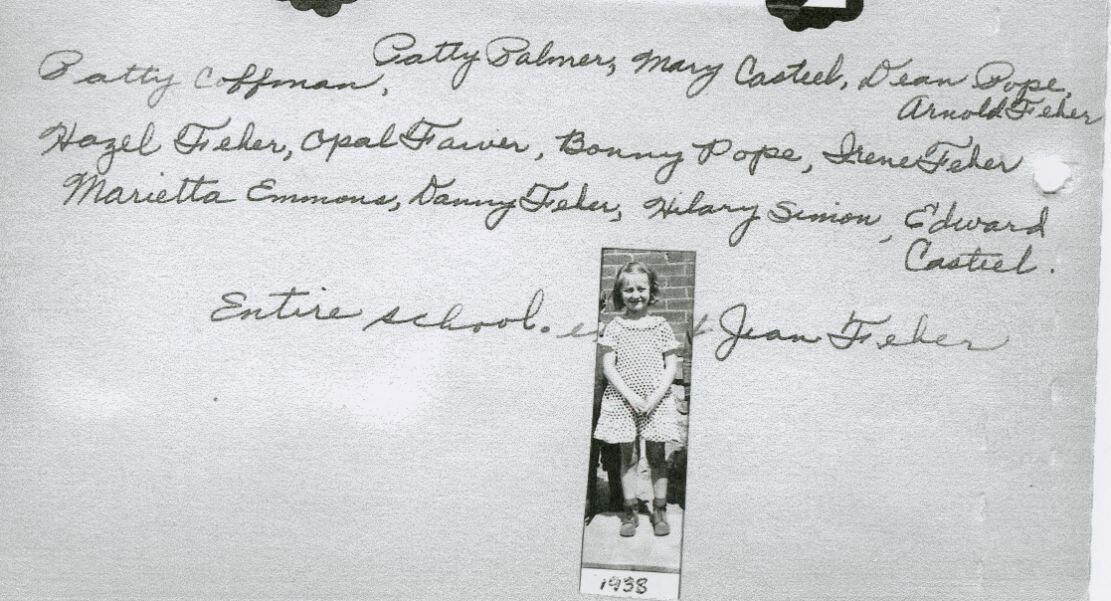 Patty Coffman, Patty Palmer, Mary Casteel, Dean Pope,
Arnold Feher
Hazel Feher, Opal Fawver, Bonny Pope, Irene Feher
Marietta Emmons, Danny Feher, Hilary Simon, Edward
Casteel.
Entire school. Jean Feher
1938